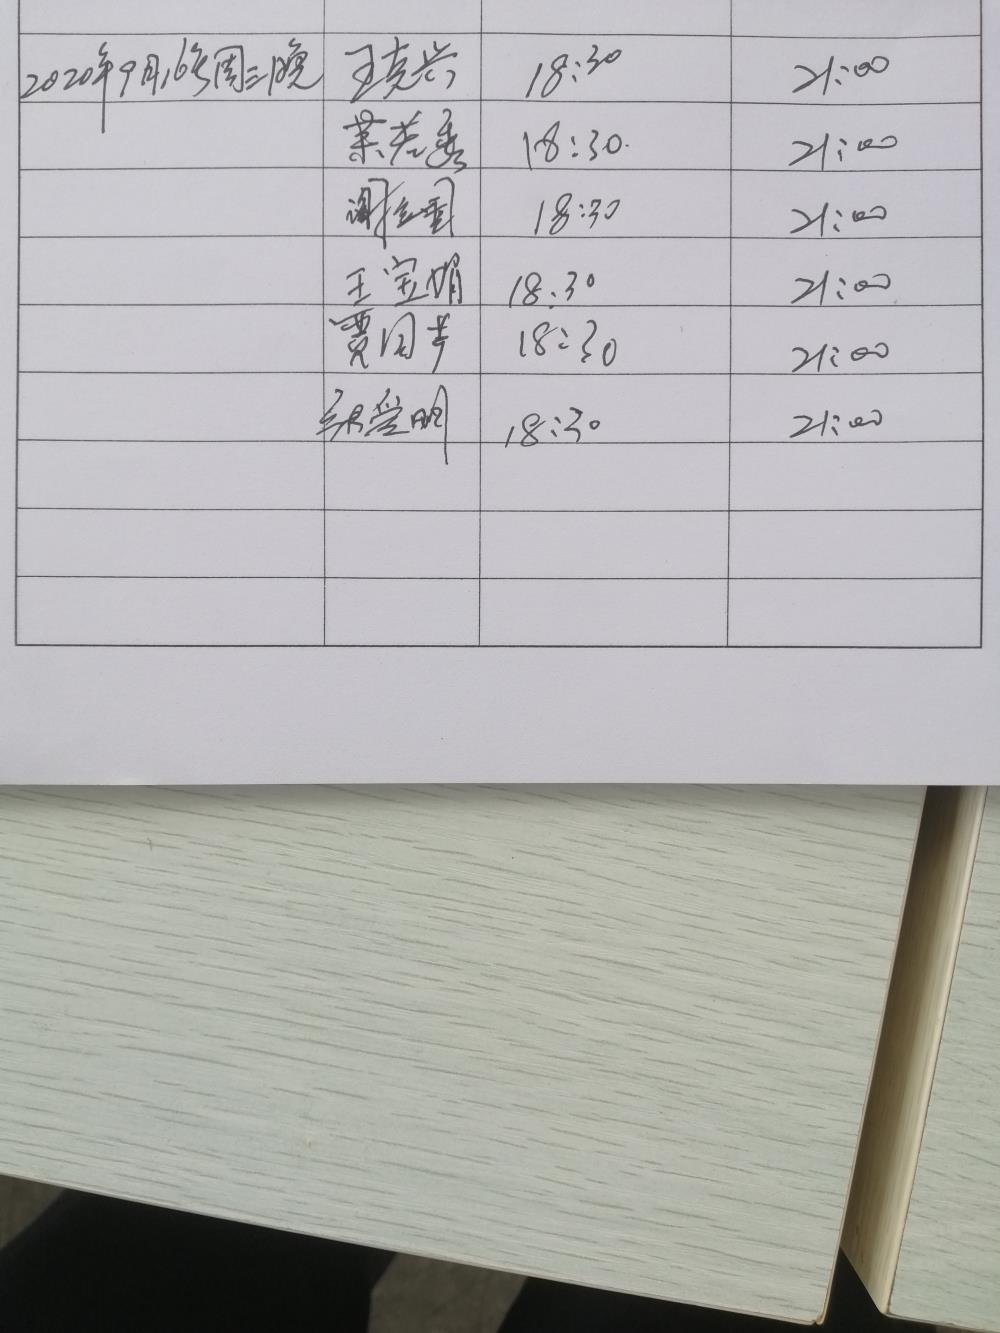 2020年9月16号周三晚 王克兴 18:30 21:00
叶若秀 18:30 21:00
谢 18:30 21:00
王宝娟 18:30 21:00
贾国芳 18:30 21:00
张爱明 18:30 21:00